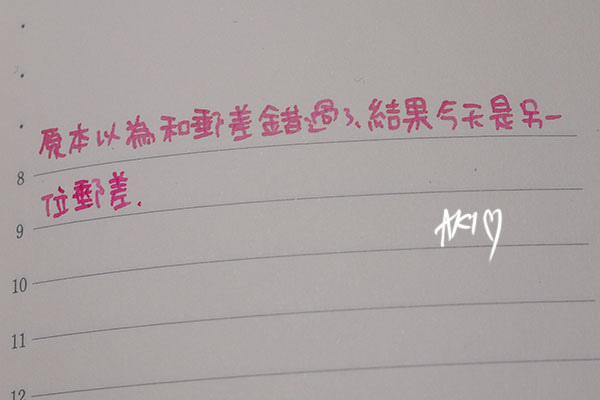 原本以為和郵差錯過了、結果今天是另一
8
位郵差.
9
AKI♡
10
11
12